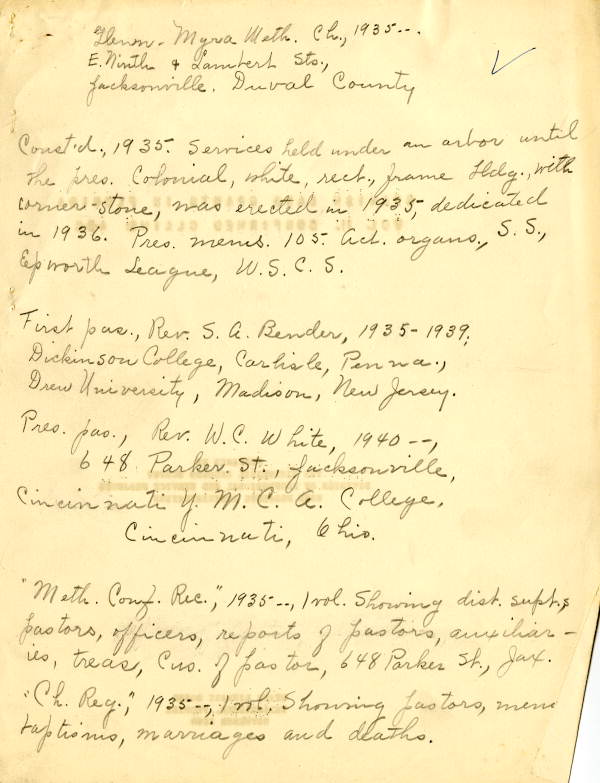 Glenn-Myra Meth. Ch., 1935--.
E. Ninth & Lambert Sts.,
Jacksonville. Duval County
Const'd., 1935. Services held under an arbor until
the pres. Colonial, white, rect., frame bldg., with
corner-stone, was erected in 1935, dedicated
in 1936. Pres. mems. 105. Act. organs., S. S.,
Epworth League, W. S. C. S.
First pas., Rev. S. A. Bender, 1935-1939;
Dickinson College, Carlisle, Penna.,
Drew University, Madison, New Jersey.
Pres. pas., Rev. W. C. White, 1940--,
648 Parker St., Jacksonville,
Cincinnati Y. M. C. A. College,
Cincinnati, Ohio.
"Meth. Conf. Rec.", 1935--, 1 vol. Showing dist. supt.,
pastors, officers, reports of pastors, auxiliar-
ies, treas, Cus. of pastor, 648 Parker St., Jax.
"Ch. Reg.", 1935--, 1 vol. Showing pastors, mem
baptisms, marriages and deaths.